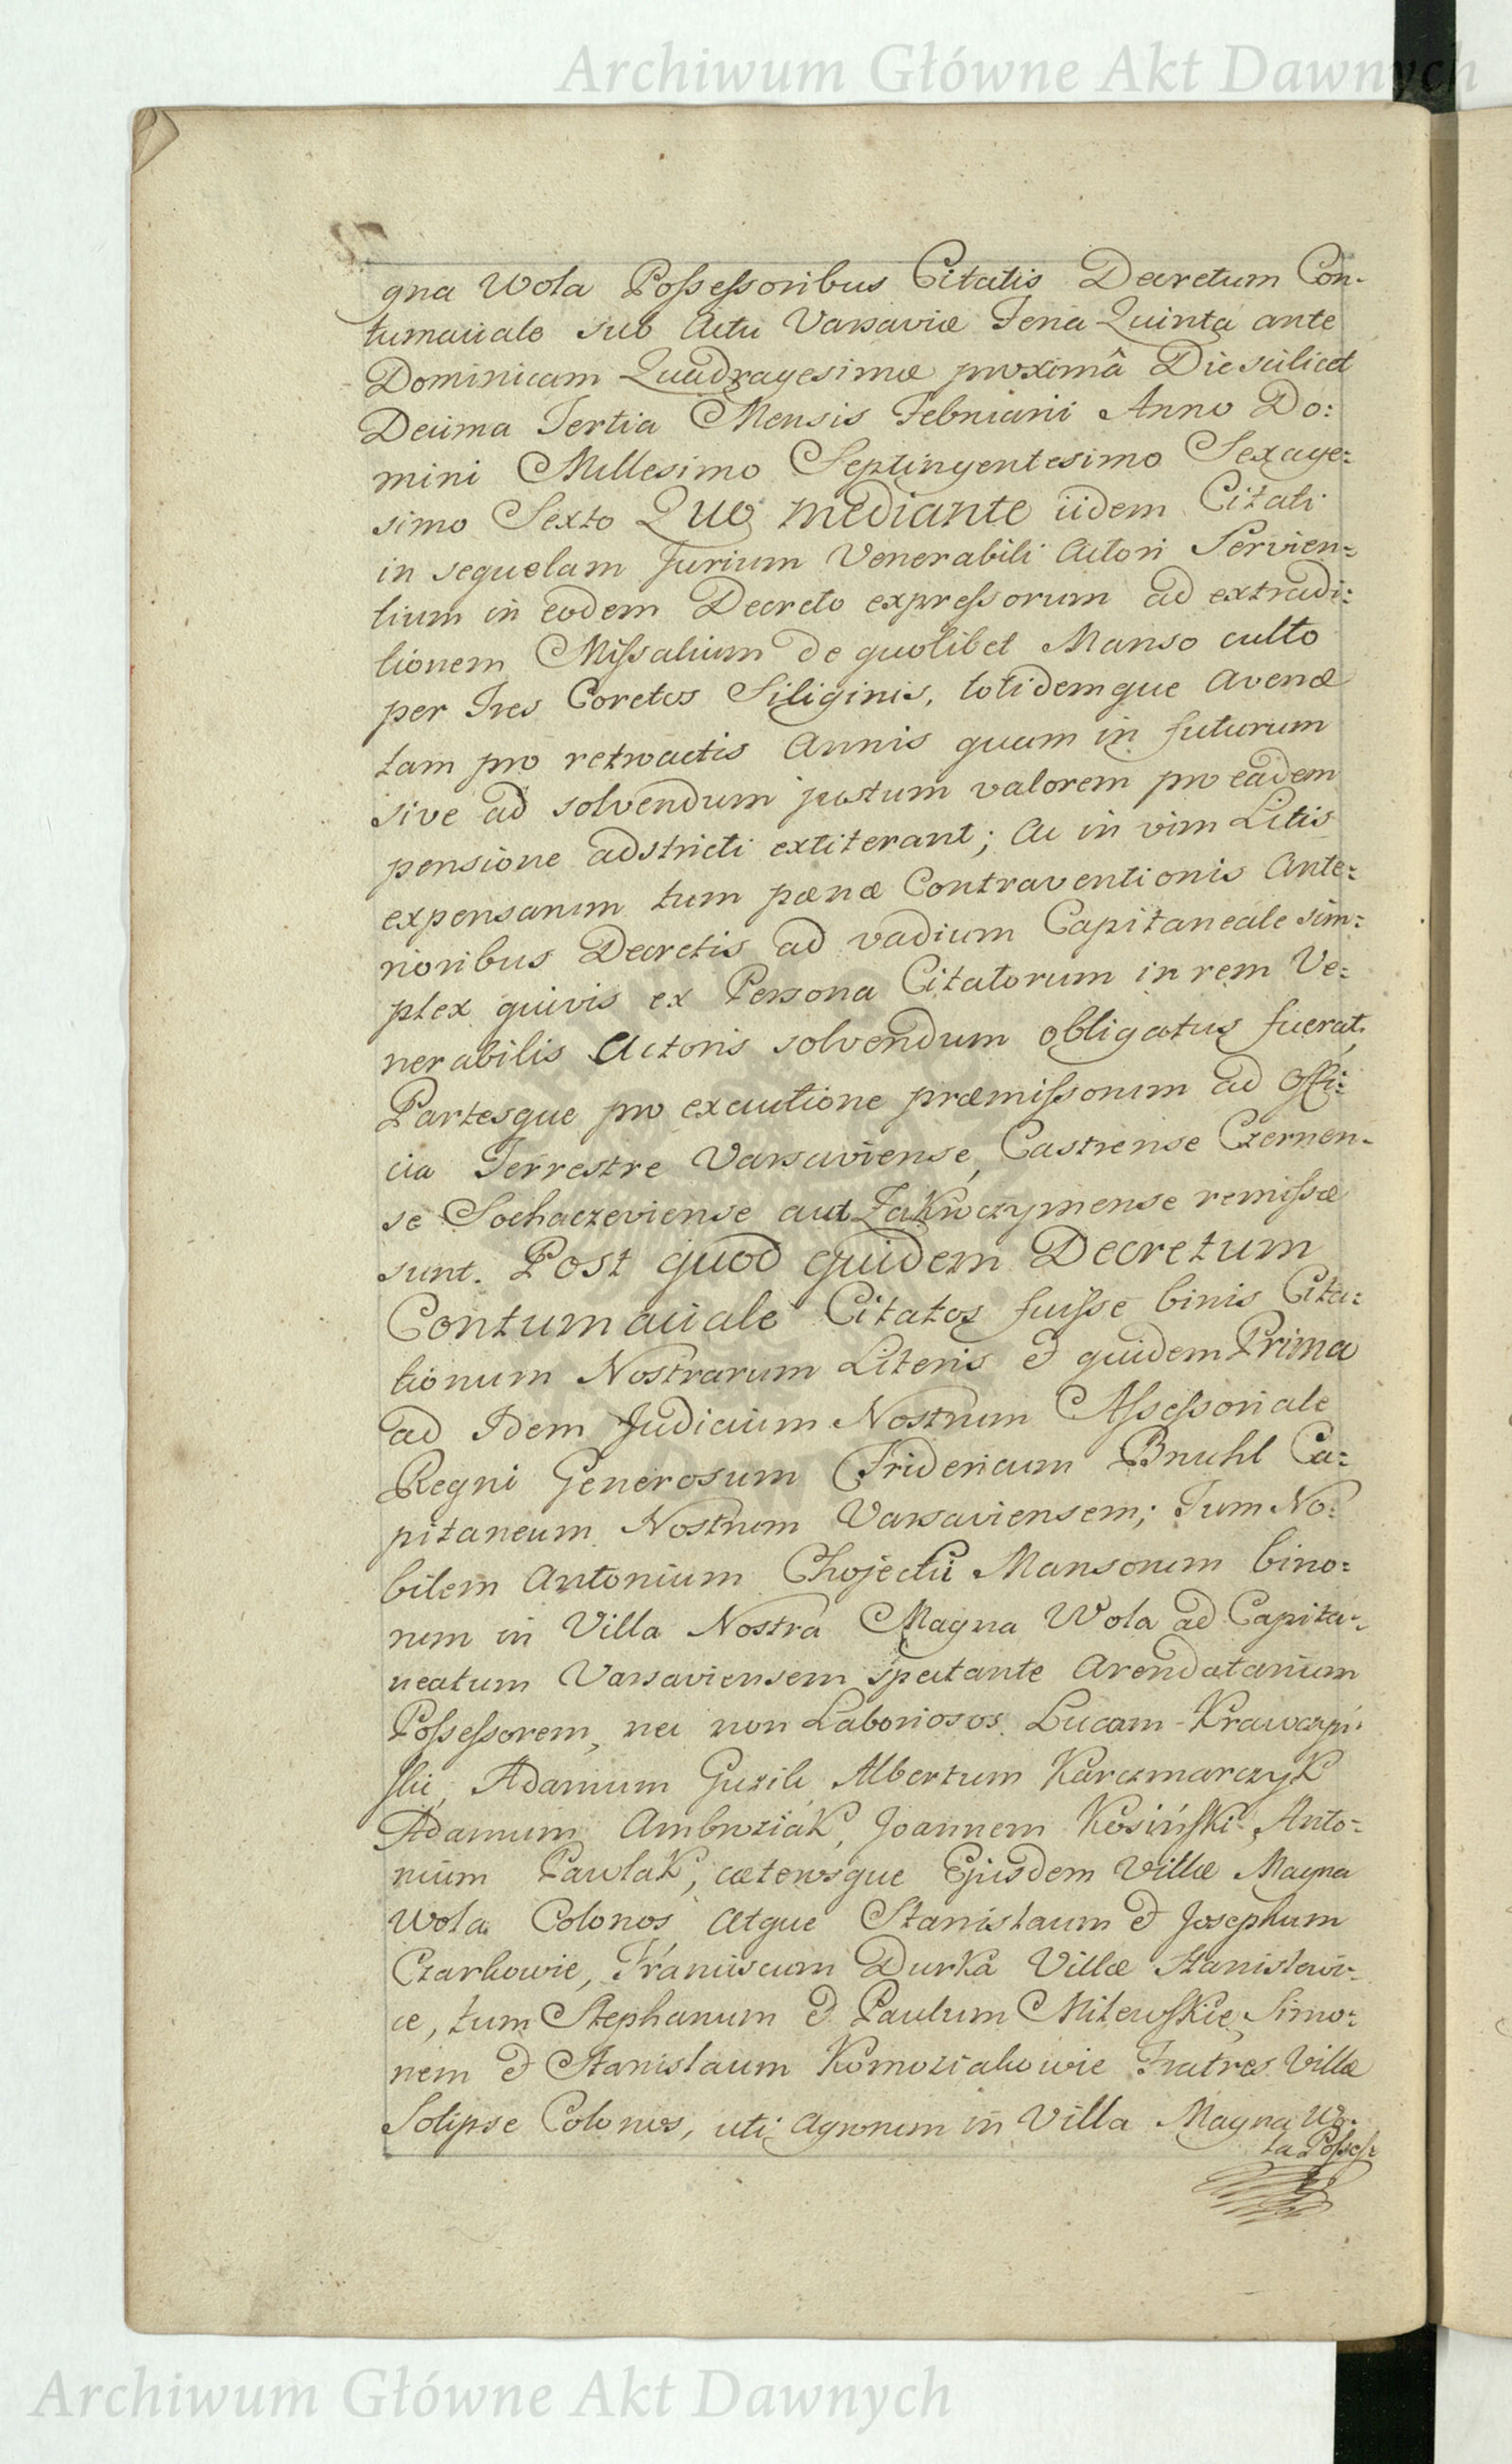 Archiwum Główne Akt Dawnych
gna Wola Possessoribus Citatis Decretum Con-
tumaciale sub Actu Varsaviæ Feria Quinta ante
Dominicam Quadragesimæ proximâ Die scilicet
Decima Tertia Mensis Februarii Anno Do:
mini Millesimo Septingentesimo Sexage:
simo Sexto Quo mediante iidem Citati
in sequelam Jurium Venerabili Actori Servien=
tium in eodem Decreto expressorum ad extradi:
tionem Missalium de quolibet Manso culto
per Tres Coretos Siliginis, totidemque Avenæ
tam pro retroactis Annis quam in futurum
sive ad solvendum justum valorem pro eadem
pensione adstricti extiterant; Ac in vim Litis
expensarum tum pœnæ Contraventionis Ante:
rioribus Decretis ad vadium Capitaneale sim:
plex quivis ex Persona Citatorum in rem Ve:
nerabilis Actoris solvendum obligatus fuerat,
Partesque pro executione præmissorum ad Offi:
cia Terrestre Varsaviense, Castrense Czernen-
se Sochaczeviense aut Zakroczymense remissæ
sunt. Post quod quidem Decretum
Contumaciale Citatos fuisse binis Cita:
tionum Nostrarum Literis & quidem Prima
ad Idem Judicium Nostrum Assessoriale
Regni Generosum Fridericum Bruhl Ca:
pitaneum Nostrum Varsaviensem; Tum No:
bilem Antonium Chojecki Mansorum bino=
rum in Villa Nostra Magna Wola ad Capita-
neatum Varsaviensem spectante Arendatarium
Possessorem, nec non Laboriosos Lucam Krawczyń
ski, Adamum Guzik, Albertum Karczmarczyk
Adamum Ambroziak, Joannem Kosiński Anto=
nium Pawlak, cæterosque Ejusdem Villæ Magna
Wola Colonos, Atque Stanislaum & Josephum
Czarkowie, Franciscum Durka Villæ Stanislawi-
ce, tum Stephanum & Paulum Milewskie, Simo:
nem & Stanislaum Komoziakowie Fratres Villæ
Solipse Colonos, uti Agrorum in Villa Magna Wo-
la Posses:
Archiwum Główne Akt Dawnych